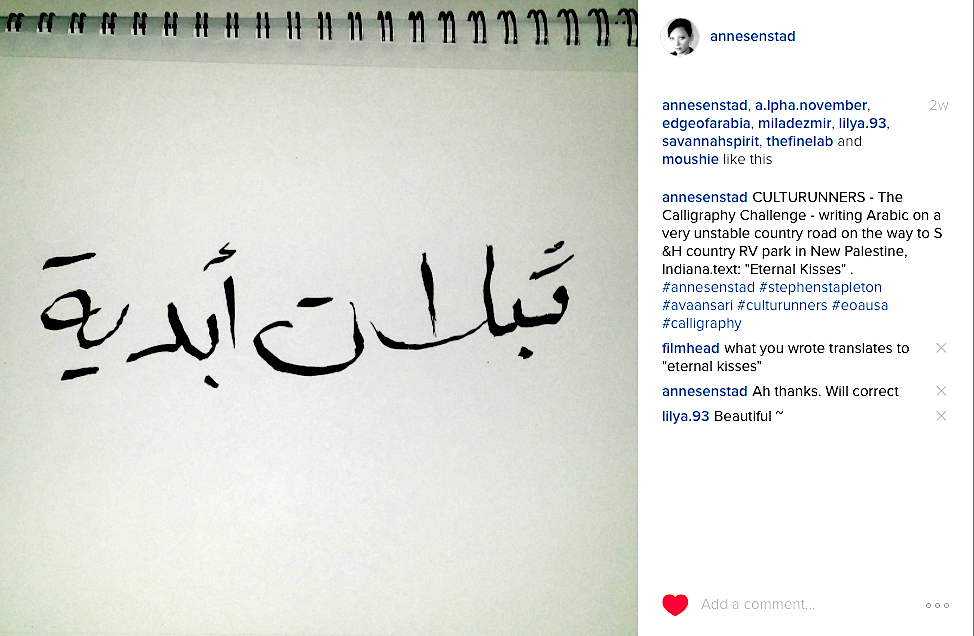 قبلات أبدية
annesenstad
annesenstad, a.lpha.november,
edgeofarabia, miladezmir, lilya.93,
savannahspirit, thefinelab and
moushie like this
2w
annesenstad CULTURUNNERS - The
Calligraphy Challenge - writing Arabic on a
very unstable country road on the way to S
&H country RV park in New Palestine,
Indiana.text: "Eternal Kisses" .
#annesenstad #stephenstapleton
#avaansari #culturunners #eoausa
#calligraphy
filmhead what you wrote translates to
"eternal kisses"
annesenstad Ah thanks. Will correct
lilya.93 Beautiful ~
Add a comment...